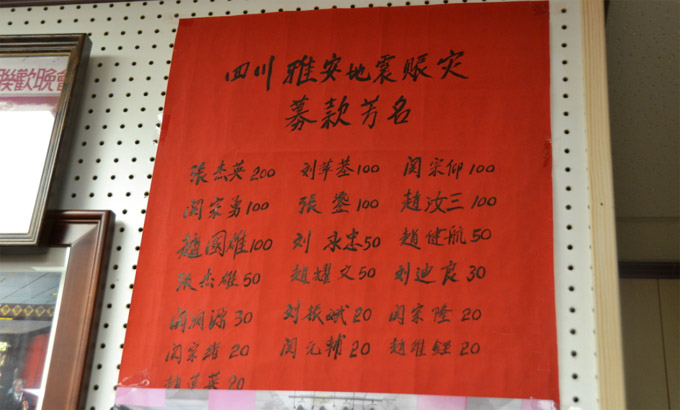 聯歡晚會
四川雅安地震赈灾
募款芳名
張杰英200 刘華基100 闵宗仰100
闵家勇100 張鎏100 趙汝三100
趙國雄100 刘永忠50 趙健航50
張杰雄50 趙耀文50 刘迪良30
闵润源30 刘振斌20 闵宗隆20
闵宗瑨20 闵元輔20 趙維經20
趙 英20